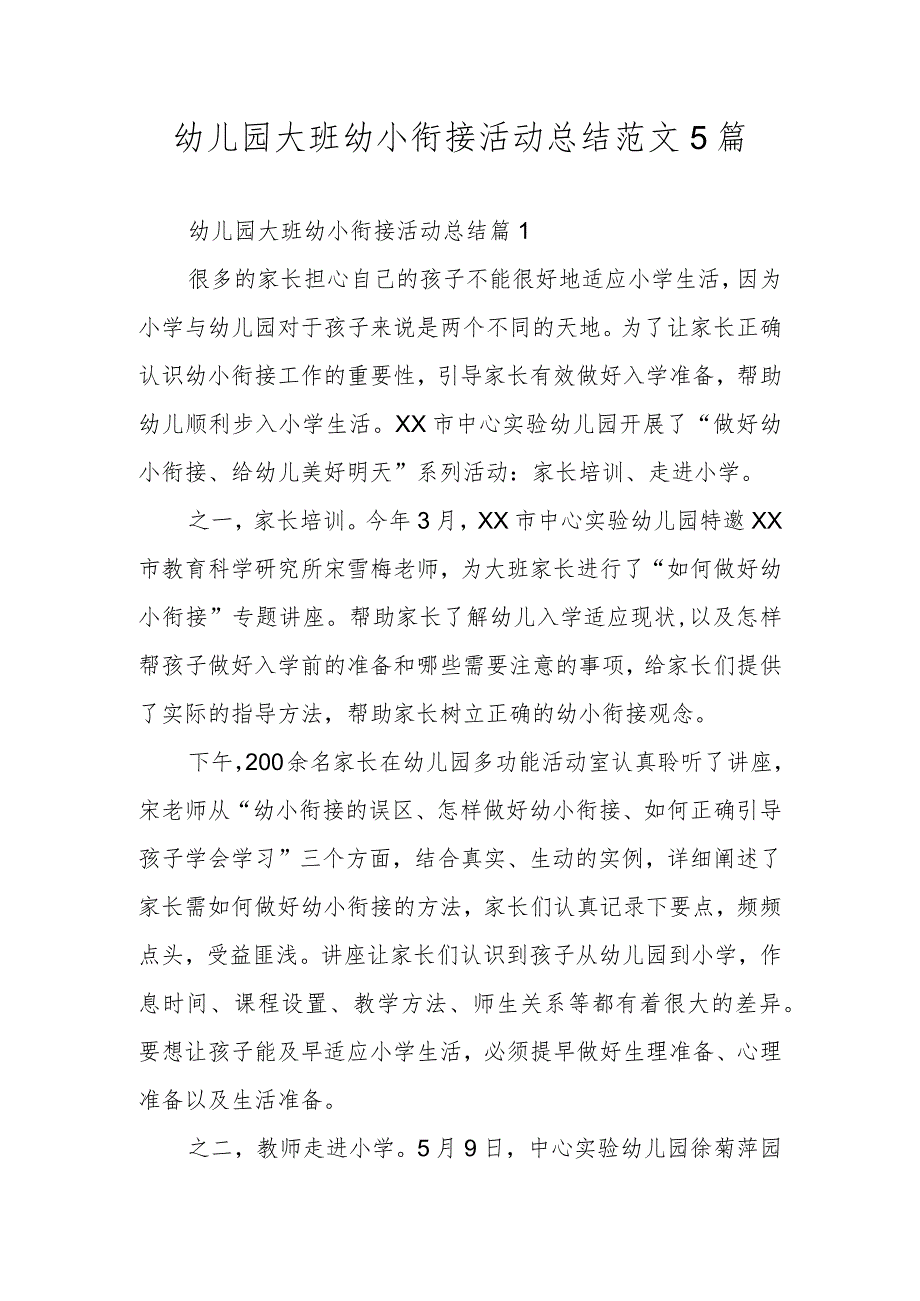 幼儿园大班幼小衔接活动总结范文5篇
幼儿园大班幼小衔接活动总结篇1
很多的家长担心自己的孩子不能很好地适应小学生活，因为
小学与幼儿园对于孩子来说是两个不同的天地。为了让家长正确
认识幼小衔接工作的重要性，引导家长有效做好入学准备，帮助
幼儿顺利步入小学生活。XX市中心实验幼儿园开展了“做好幼
小衔接、给幼儿美好明天”系列活动：家长培训、走进小学。
之一，家长培训。今年3月，XX市中心实验幼儿园特邀XX
市教育科学研究所宋雪梅老师，为大班家长进行了“如何做好幼
小衔接”专题讲座。帮助家长了解幼儿入学适应现状,以及怎样
帮孩子做好入学前的准备和哪些需要注意的事项，给家长们提供
了实际的指导方法，帮助家长树立正确的幼小衔接观念。
下午，200余名家长在幼儿园多功能活动室认真聆听了讲座，
宋老师从“幼小衔接的误区、怎样做好幼小衔接、如何正确引导
孩子学会学习”三个方面，结合真实、生动的实例，详细阐述了
家长需如何做好幼小衔接的方法，家长们认真记录下要点，频频
点头，受益匪浅。讲座让家长们认识到孩子从幼儿园到小学，作
息时间、课程设置、教学方法、师生关系等都有着很大的差异。
要想让孩子能及早适应小学生活，必须提早做好生理准备、心理
准备以及生活准备。
之二，教师走进小学。5月9日，中心实验幼儿园徐菊萍园